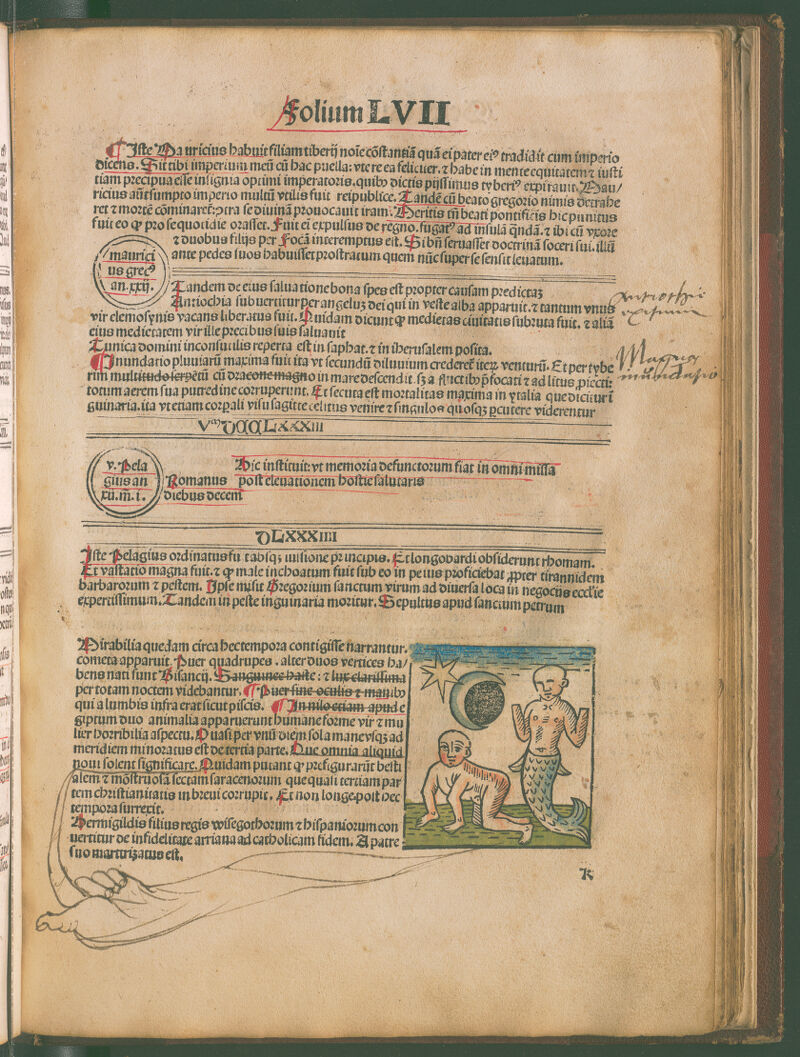 Folium LVII
Iste Mauricius habuit filiam tiberij noīe cōstantiā quā ei pater eiꝰ tradidit cum imperio
dicens. Sit tibi imperium meū cū hac puella: vtere ea feliciter. ⁊ habe in mente equitatem ⁊ iusti
tiam precipua esse insignia optimi imperatoris. quibꝰ dictis pijssimus tyberiꝰ expirauit. Mau/
ricius aūt sumpto imperio multū vtilis fuit reipublice. Tandē cū beato gregorio nimis detrahe
ret ⁊ mortē cōminaret: cōtra se diuinā prouocauit iram. Meritis tn̄ beati pontificis hic punitus
fuit eo ꝙ pro se quotidie orasset. Fuit ei expulsus de regno. fugatꝰ ad insulā qndā. ⁊ ibi cū vxore
⁊ duobus filijs per Focā interemptus est. Si bn̄ seruasset doctrinā soceri sui. illū
ante pedes suos habuisset prostratum quem nūc super se sensit leuatum.
maurici
us grecꝰ
an. xxij.
Tandem de eius saluatione bona spes est propter causam predictaꝫ
Antiochia subuertitur per angeluꝫ dei qui in veste alba apparuit. ⁊ tantum vnus
vir elemosynis vacans liberatus fuit. Quidam dicunt ꝙ medietas ciuitatis subruta fuit. ⁊ aliā
eius medietatem vir ille precibus suis saluauit
Tunica domini inconsutilis reperta est in saphat. ⁊ in iherusalem posita.
Inundatio pluuiarū maxima fuit ita vt secundū diluuium crederet iteꝝ venturū. Et per tybe
rim multitudo serpētū cū dracone magno in mare descendit. sꝫ a fluctibꝰ p̄focati ⁊ ad litus piecti:
totum aerem sua putredine corruperunt. Et secuta est mortalitas maxima in ytalia que dicitur i
guinaria. ita vt etiam corpali visu sagitte celitus venire ⁊ singulos quosqꝫ pcutere viderentur
Antiochie
Magna
inundatio
VᵐDCCLXXXIII
v. Pela
gius an
xii. m̄. i.
Romanus
Hic instituit: vt memoria defunctorum fiat in omni missa
post eleuationem hostie salutaris
diebus decem
DLXXXIIII
Iste Pelagius ordinatus fu t absqꝫ iussione principis. Et longobardi obsiderunt rhomam.
Et vastatio magna fuit. ⁊ ꝙ male inchoatum fuit sub eo in peius proficiebat ꝓpter tirannidem
barbarorum ⁊ pestem. Ipse misit Gregorium sanctum virum ad diuersa loca in negocijs ecclīe
expertissimum. Tandem in peste inguinaria moritur. Sepultus apud sanctum petrum
Mirabilia quedam circa hec tempora contigisse narrantur.
cometa apparuit. Puer quadrupes. alter duos vertices ha/
bens nati sunt Bisancij. Sanguinee haste: ⁊ lux clarissima
per totam noctem videbantur. Puer sine oculis ⁊ manibꝰ
qui a lumbis infra erat sicut piscis. In nilo etiam apud e
giptum duo animalia apparuerunt humane forme vir ⁊ mu
lier horribilia aspectu. Quasi per vnū diem sol a mane vsqꝫ ad
meridiem minoratus est de tertia parte. Que omnia aliquid
noui solent significare. Quidam putant ꝙ prefigurarūt besti
alem ⁊ mōstruosā sectam saracenorum que quasi tertiam par
tem christianitatis in breui corrupit. Et non longe post hec
tempora surrexit.
Hermigildis filius regis wisegothorum ⁊ hispaniorum con
uertitur de infidelitate arriana ad catholicam fidem. A patre
suo martirizatus est.
K